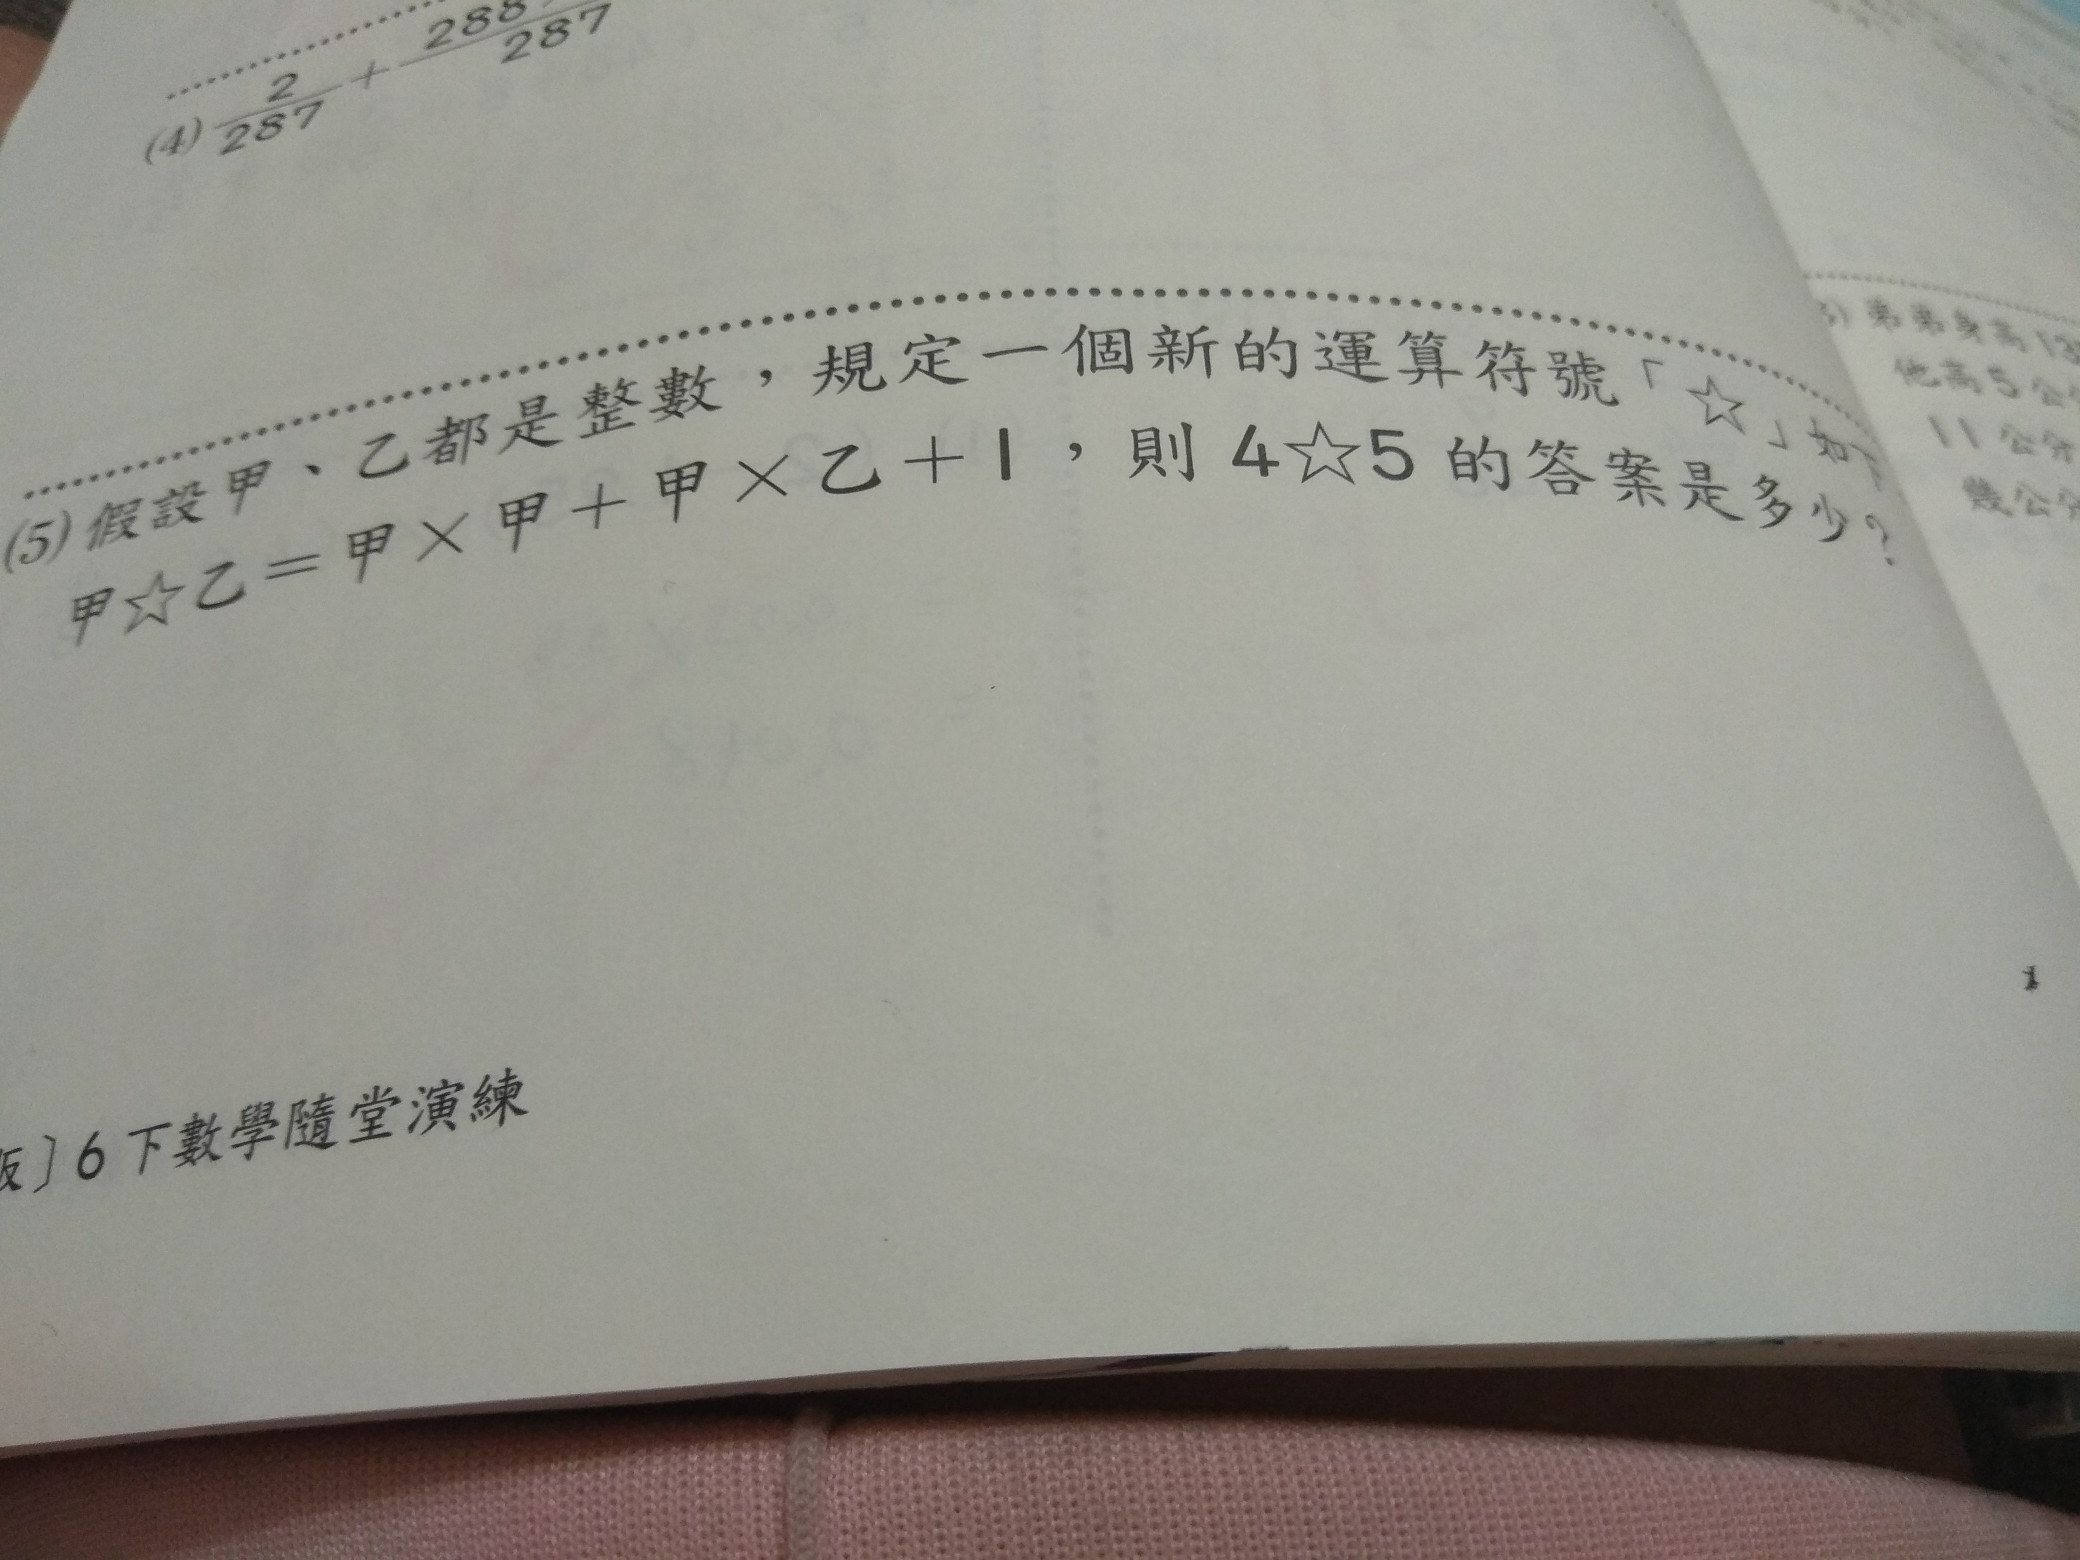 (4) 2/287 + 288/287
(5) 假設甲、乙都是整數，規定一個新的運算符號「☆」如下
甲☆乙＝甲×甲＋甲×乙＋1，則 4☆5 的答案是多少？
版〕6 下數學隨堂演練
弟弟身高
他高5公
11 公分
幾公分
1